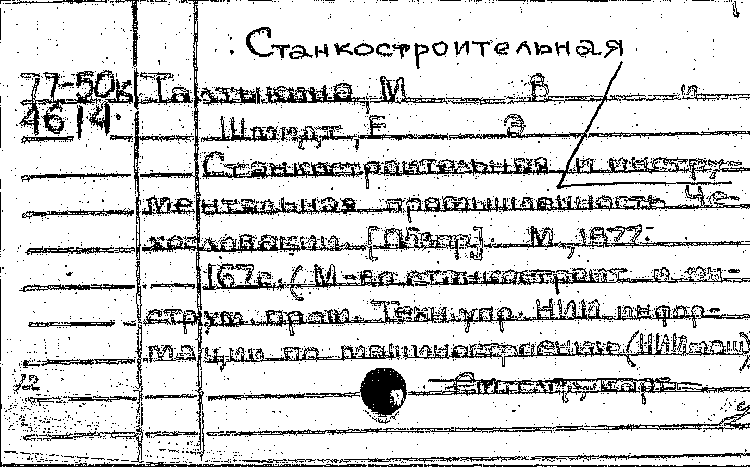 Станкостроительная
77-50к Талтыкина, М В и
4614. Шмидт, Е Э
Станкостроительная и инстру-
ментальная промышленность Че-
хословакии. [Обзор]. М., 1977.
167с. (М-во станкостроит. и ин-
струм. пром. Техн. упр. НИИ инфор-
мации по машиностроению (НИИмаш)
12